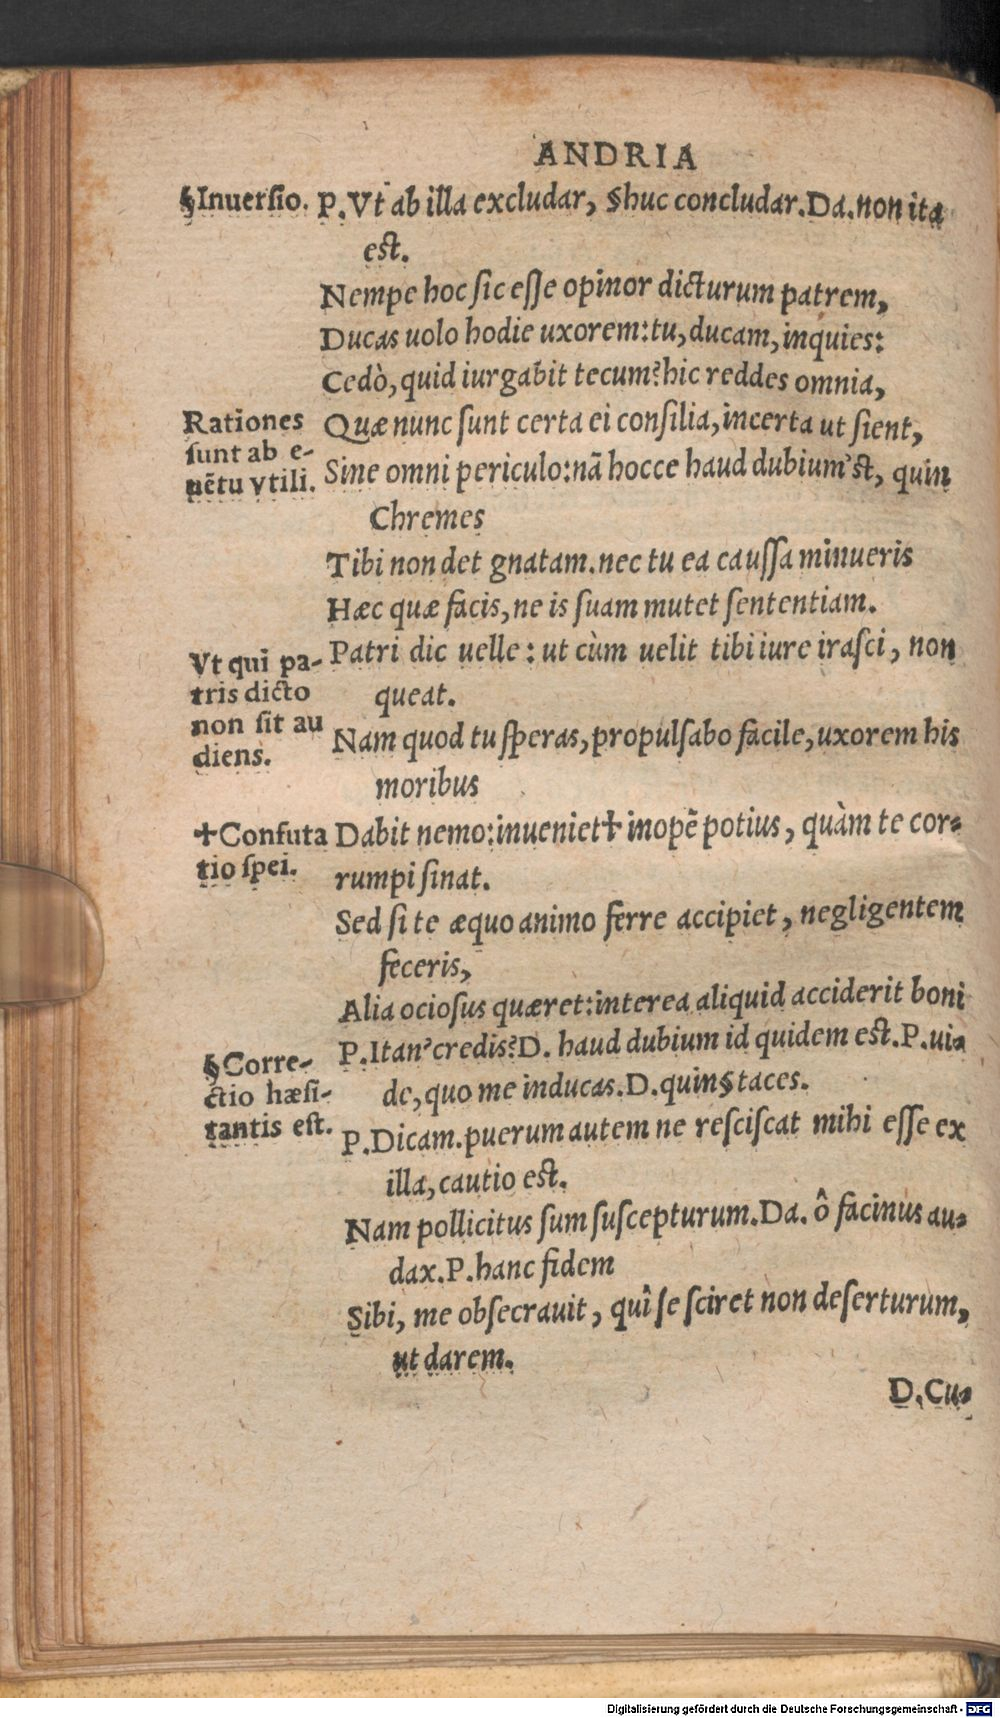 ANDRIA
§Inuersio. P. Vt ab illa excludar, §huc concludar. Da. non ita
est.
Nempe hoc sic esse opinor dicturum patrem,
Ducas uolo hodie uxorem: tu, ducam, inquies:
Cedò, quid iurgabit tecum? hic reddes omnia,
Rationes
sunt ab e-
uẽtu vtili.
Quæ nunc sunt certa ei consilia, incerta ut sient,
Sine omni periculo: nã hocce haud dubium'st, quin
Chremes
Tibi non det gnatam. nec tu ea caussa minueris
Hæc quæ facis, ne is suam mutet sententiam.
Vt qui pa-
tris dicto
non sit au
diens.
Patri dic uelle: ut cùm uelit tibi iure irasci, non
queat.
Nam quod tu speras, propulsabo facile, uxorem his
moribus
✝Confuta
tio spei.
Dabit nemo: inueniet✝ inopẽ potius, quàm te cor-
rumpi sinat.
Sed si te æquo animo ferre accipiet, negligentem
feceris,
Alia ociosus quæret: interea aliquid acciderit boni
§Corre-
ctio hæsi-
tantis est.
P. Itan' credis? D. haud dubium id quidem est. P. ui-
de, quo me inducas. D. quin§ taces.
P. Dicam. puerum autem ne resciscat mihi esse ex
illa, cautio est.
Nam pollicitus sum suscepturum. Da. ô facinus au-
dax. P. hanc fidem
Sibi, me obsecrauit, quî se sciret non deserturum,
ut darem.
D. Cu-
Digitalisierung gefördert durch die Deutsche Forschungsgemeinschaft - DFG